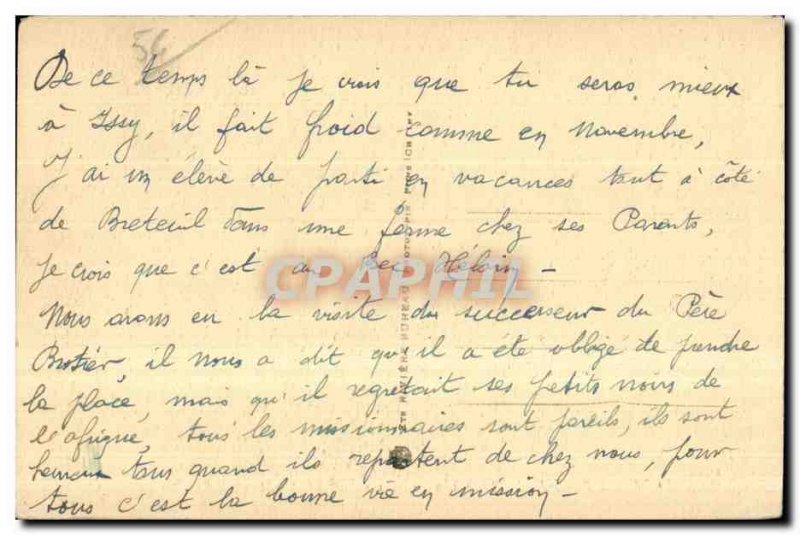 54
De ce temps là je crois que tu seras mieux
à Issy, il fait froid comme en Novembre,
J'ai un élève de parti en vacances tout à côté
de Breteuil dans une ferme chez ses Parents,
je crois que c'est au Bec Héloin -
CPAPHIL
Nous avons eu la visite du successeur du Père
Brotier, il nous a dit qu'il a été obligé de prendre
la place, mais qu'il regrettait ses petits noirs de
l'afrique, tous les missionnaires sont pareils, ils sont
heureux tous quand ils repartent de chez nous, pour
tous c'est la bonne vie en mission -